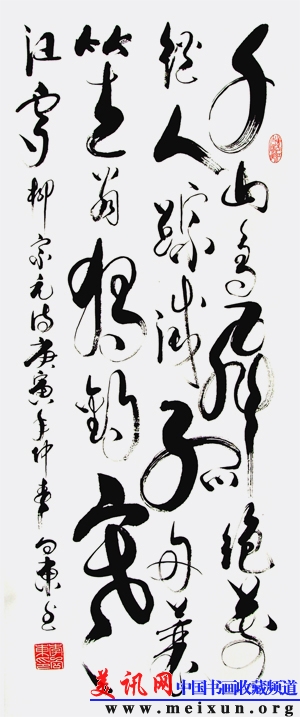 千山鸟飛绝萬
徑人踪滅孤舟蓑
笠翁獨钓寒
江雪柳宗元诗庚寅年仲春
美讯网 中国书画收藏频道
www.meixun.org